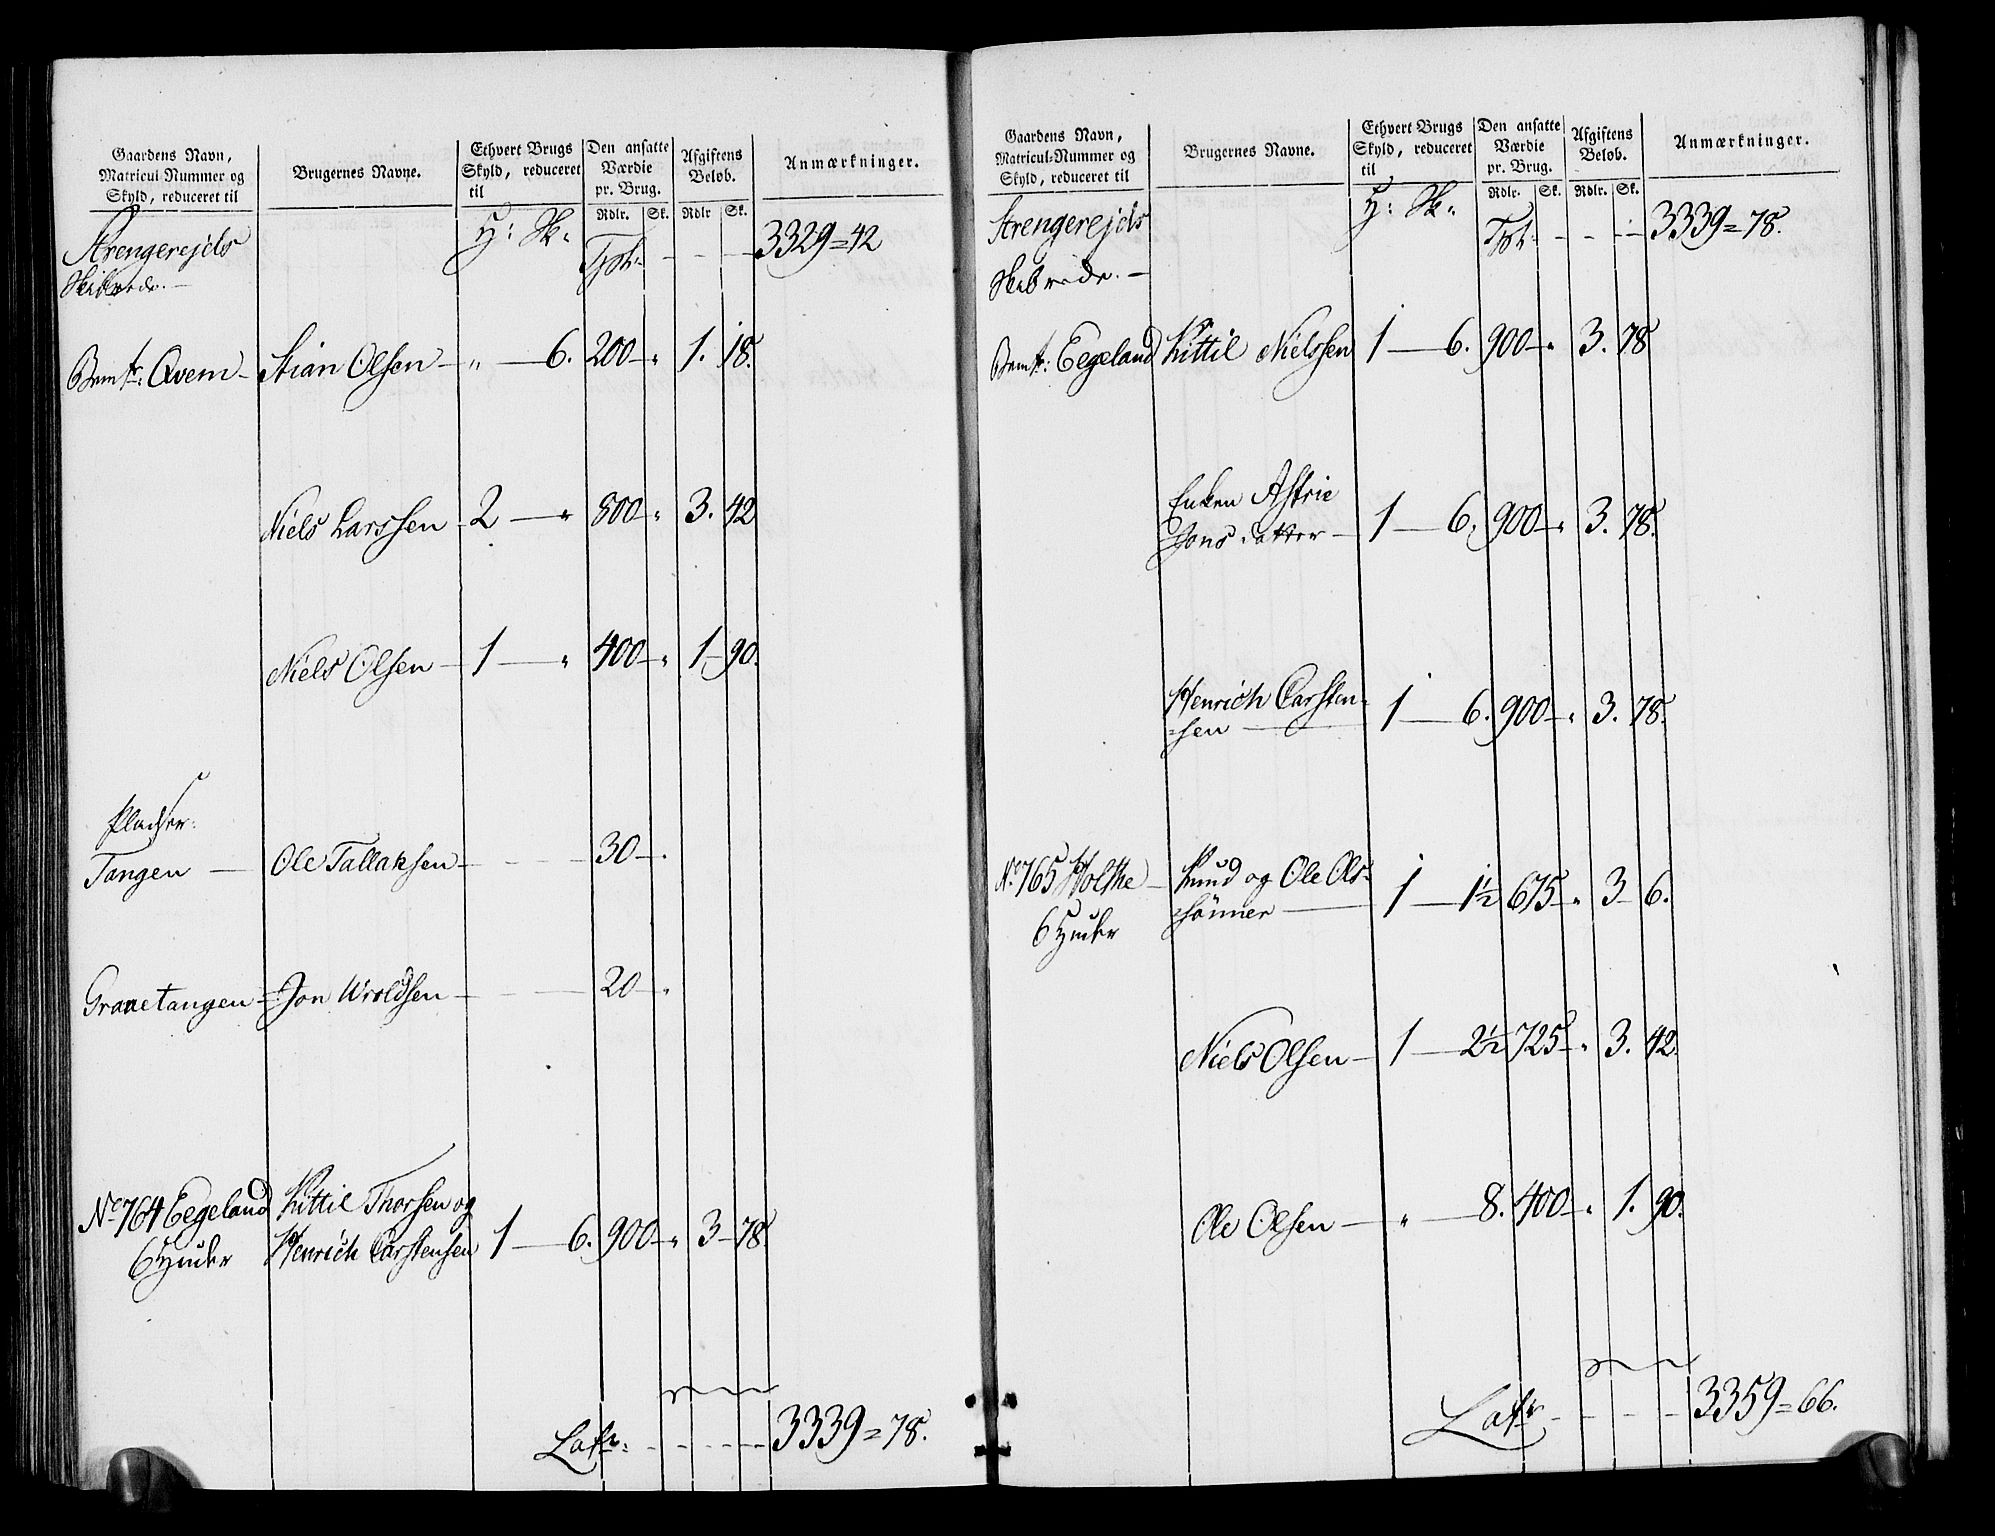 Gaardens Navn,
Matricul-Nummer og
Skyld, reduceret til
Brugernes Navne.
Ethvert Brugs
Skyld, reduceret
til
Den ansatte
Værdie
pr. Brug.
Rdlr. Sk.
Afgiftens
Beløb.
Rdlr Sk.
Anmærkninger.
Strengerejds H: Sk. Tpt. - - - 3329=42
Skibrede.
Bemte: Qvem - Stian Olsen - „ - 6. 200 - „ 1. 18.
Niels Larssen - 2 - „ 800 - „ 3. 42
Niels Olsen - 1 - „ 400 - „ 1 - 90.
Pladser:
Tangen - Ole Tallaksen - - - 30 - „
Granetangen - Jon Wroldsen - - - 20 - „
No 764 Eegeland Kittil Thorsen og
6 Huder Henrich Carstensen 1 - 6. 900 - „ 3 - 78.
Latr: - - - - 3339=78.
Gaardens Navn,
Matricul-Nummer og
Skyld, reduceret til
Brugernes Navne.
Ethvert Brugs
Skyld, reduceret
til
Den ansatte
Værdie
pr. Brug.
Rdlr. Sk.
Afgiftens
Beløb.
Rdlr. Sk.
Anmærkninger.
Strengerejds H: Sk. Tpt. - - - 3339=78.
Skibrede. -
Bemte: Eegeland Kittil Nielssen 1 - 6. 900 - „ 3. 78
Enken Astrie
Jonsdatter - 1 - 6. 900 - „ 3. 78.
Henrich Carsten-
sen - 1 - 6. 900 - „ 3. 78.
No 765 Holthe - Knud og Ole Ols-
6 Huder sønner - 1 - 1½ 675 - „ 3 - 6.
Niels Olsen - 1 - 2½ 725 - „ 3. 42.
Ole Olsen - „ - 8. 400 - „ 1. 90.
Latr - - - - 3359=66.